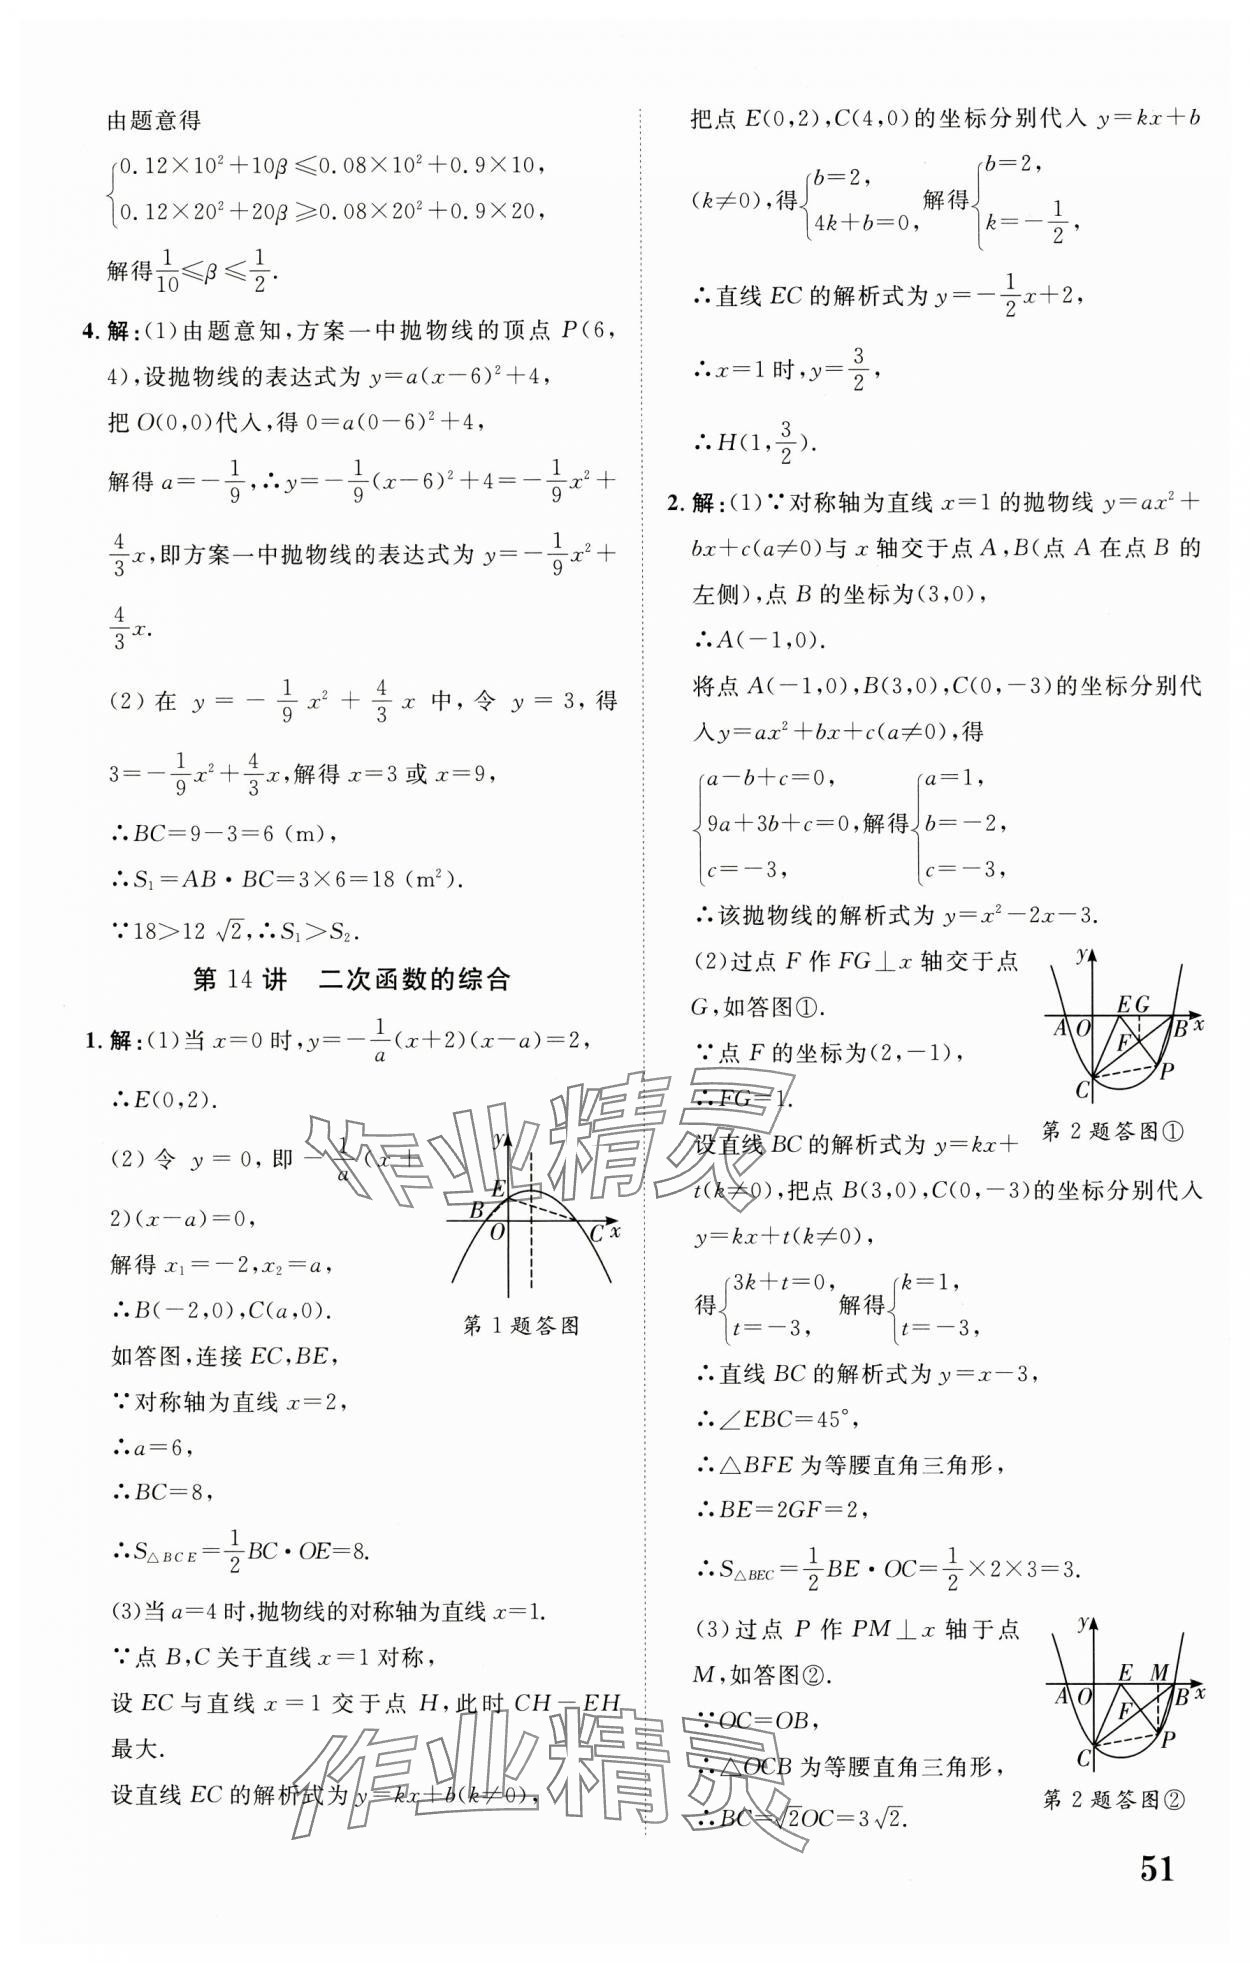 由题意得
{0.12×10²+10β≤0.08×10²+0.9×10,
0.12×20²+20β≥0.08×20²+0.9×20,
解得1/10≤β≤1/2.
4.解:(1)由题意知,方案一中抛物线的顶点 P(6,
4),设抛物线的表达式为 y=a(x-6)²+4,
把 O(0,0)代入,得 0=a(0-6)²+4,
解得 a=-1/9,∴y=-1/9(x-6)²+4=-1/9x²+
4/3x,即方案一中抛物线的表达式为 y=-1/9x²+
4/3x.
(2)在 y=-1/9x²+4/3x 中,令 y=3,得
3=-1/9x²+4/3x,解得 x=3 或 x=9,
∴BC=9-3=6 (m),
∴S₁=AB·BC=3×6=18 (m²).
∵18>12√2,∴S₁>S₂.
第 14 讲 二次函数的综合
1.解:(1)当 x=0 时,y=-1/a(x+2)(x-a)=2,
∴E(0,2).
(2)令 y=0,即-1/a(x+
2)(x-a)=0,
解得 x₁=-2,x₂=a,
∴B(-2,0),C(a,0).
如答图,连接 EC,BE,
∵对称轴为直线 x=2,
∴a=6,
∴BC=8,
∴S△BCE=1/2BC·OE=8.
y
E
B
O
C
x
第 1 题答图
(3)当 a=4 时,抛物线的对称轴为直线 x=1.
∵点 B,C 关于直线 x=1 对称,
设 EC 与直线 x=1 交于点 H,此时 CH-EH
最大.
设直线 EC 的解析式为 y=kx+b(k≠0),
把点 E(0,2),C(4,0)的坐标分别代入 y=kx+b
(k≠0),得{b=2, 4k+b=0, 解得{b=2, k=-1/2,
∴直线 EC 的解析式为 y=-1/2x+2,
∴x=1 时,y=3/2,
∴H(1,3/2).
2.解:(1)∵对称轴为直线 x=1 的抛物线 y=ax²+
bx+c(a≠0)与 x 轴交于点 A,B(点 A 在点 B 的
左侧),点 B 的坐标为(3,0),
∴A(-1,0).
将点 A(-1,0),B(3,0),C(0,-3)的坐标分别代
入y=ax²+bx+c(a≠0),得
{a-b+c=0, {a=1,
9a+3b+c=0,解得 b=-2,
c=-3, c=-3,
∴该抛物线的解析式为 y=x²-2x-3.
(2)过点 F 作 FG⊥x 轴交于点
G,如答图①.
∵点 F 的坐标为(2,-1),
∴FG=1.
y
E G
A O B x
F
P
C
第 2 题答图①
设直线 BC 的解析式为 y=kx+
t(k≠0),把点 B(3,0),C(0,-3)的坐标分别代入
y=kx+t(k≠0),
得{3k+t=0, t=-3, 解得{k=1, t=-3,
∴直线 BC 的解析式为 y=x-3,
∴∠EBC=45°,
∴△BFE 为等腰直角三角形,
∴BE=2GF=2,
∴S△BEC=1/2BE·OC=1/2×2×3=3.
(3)过点 P 作 PM⊥x 轴于点
M,如答图②.
∵OC=OB,
∴△OCB 为等腰直角三角形,
∴BC=√2OC=3√2.
y
E M
A O B x
F
P
C
第 2 题答图②
51
作业精灵
作业精灵